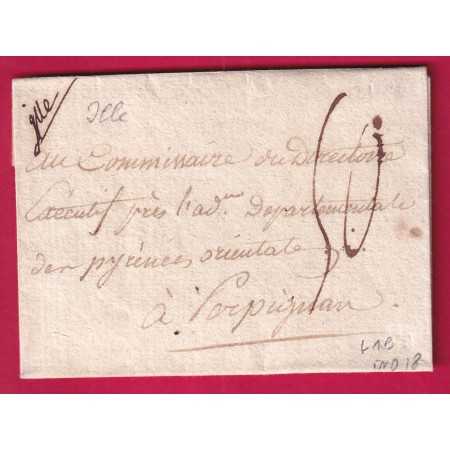 ille
Ille
au Commissaire du Directoire
Executif près l'adon Departementale
des pyrénées orientale
à Perpignan.
LAB
IND 18